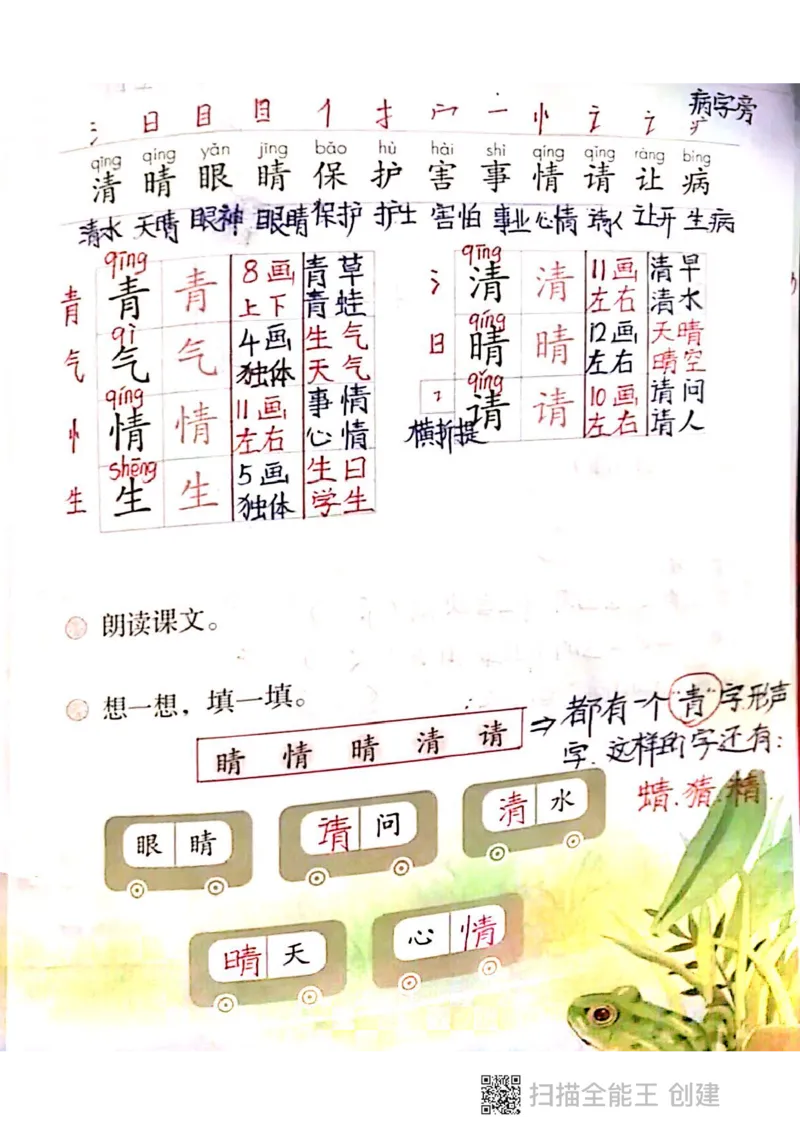 病字旁
氵 日 目 目 亻 扌 宀 一 忄 讠 讠 疒
qīng qíng yǎn jīng bǎo hù hài shì qíng qǐng ràng bìng
清 晴 眼 睛 保 护 害 事 情 请 让 病
清水 天晴 眼神 眼睛 保护 护士 害怕 事业 心情 请人 让开 生病
qīng
青 青 青 8画 青草
上下 青蛙
qì
气 气 气 4画 生气
独体 天气
qíng
忄 情 情 11画 事情
左右 心情
shēng
生 生 生 5画 生日
独体 学生
qīng
氵 清 清 11画 清早
左右 清水
qíng
日 晴 晴 12画 天晴
左右 晴空
qǐng
请 请 10画 请问
横折提 左右 请人
朗读课文。
想一想，填一填。
睛 情 晴 清 请
⇒都有一个"青"字形声
字.这样的字还有：
蜻.猜.精.
眼 睛
请 问
清 水
晴 天
心 情
扫描全能王 创建